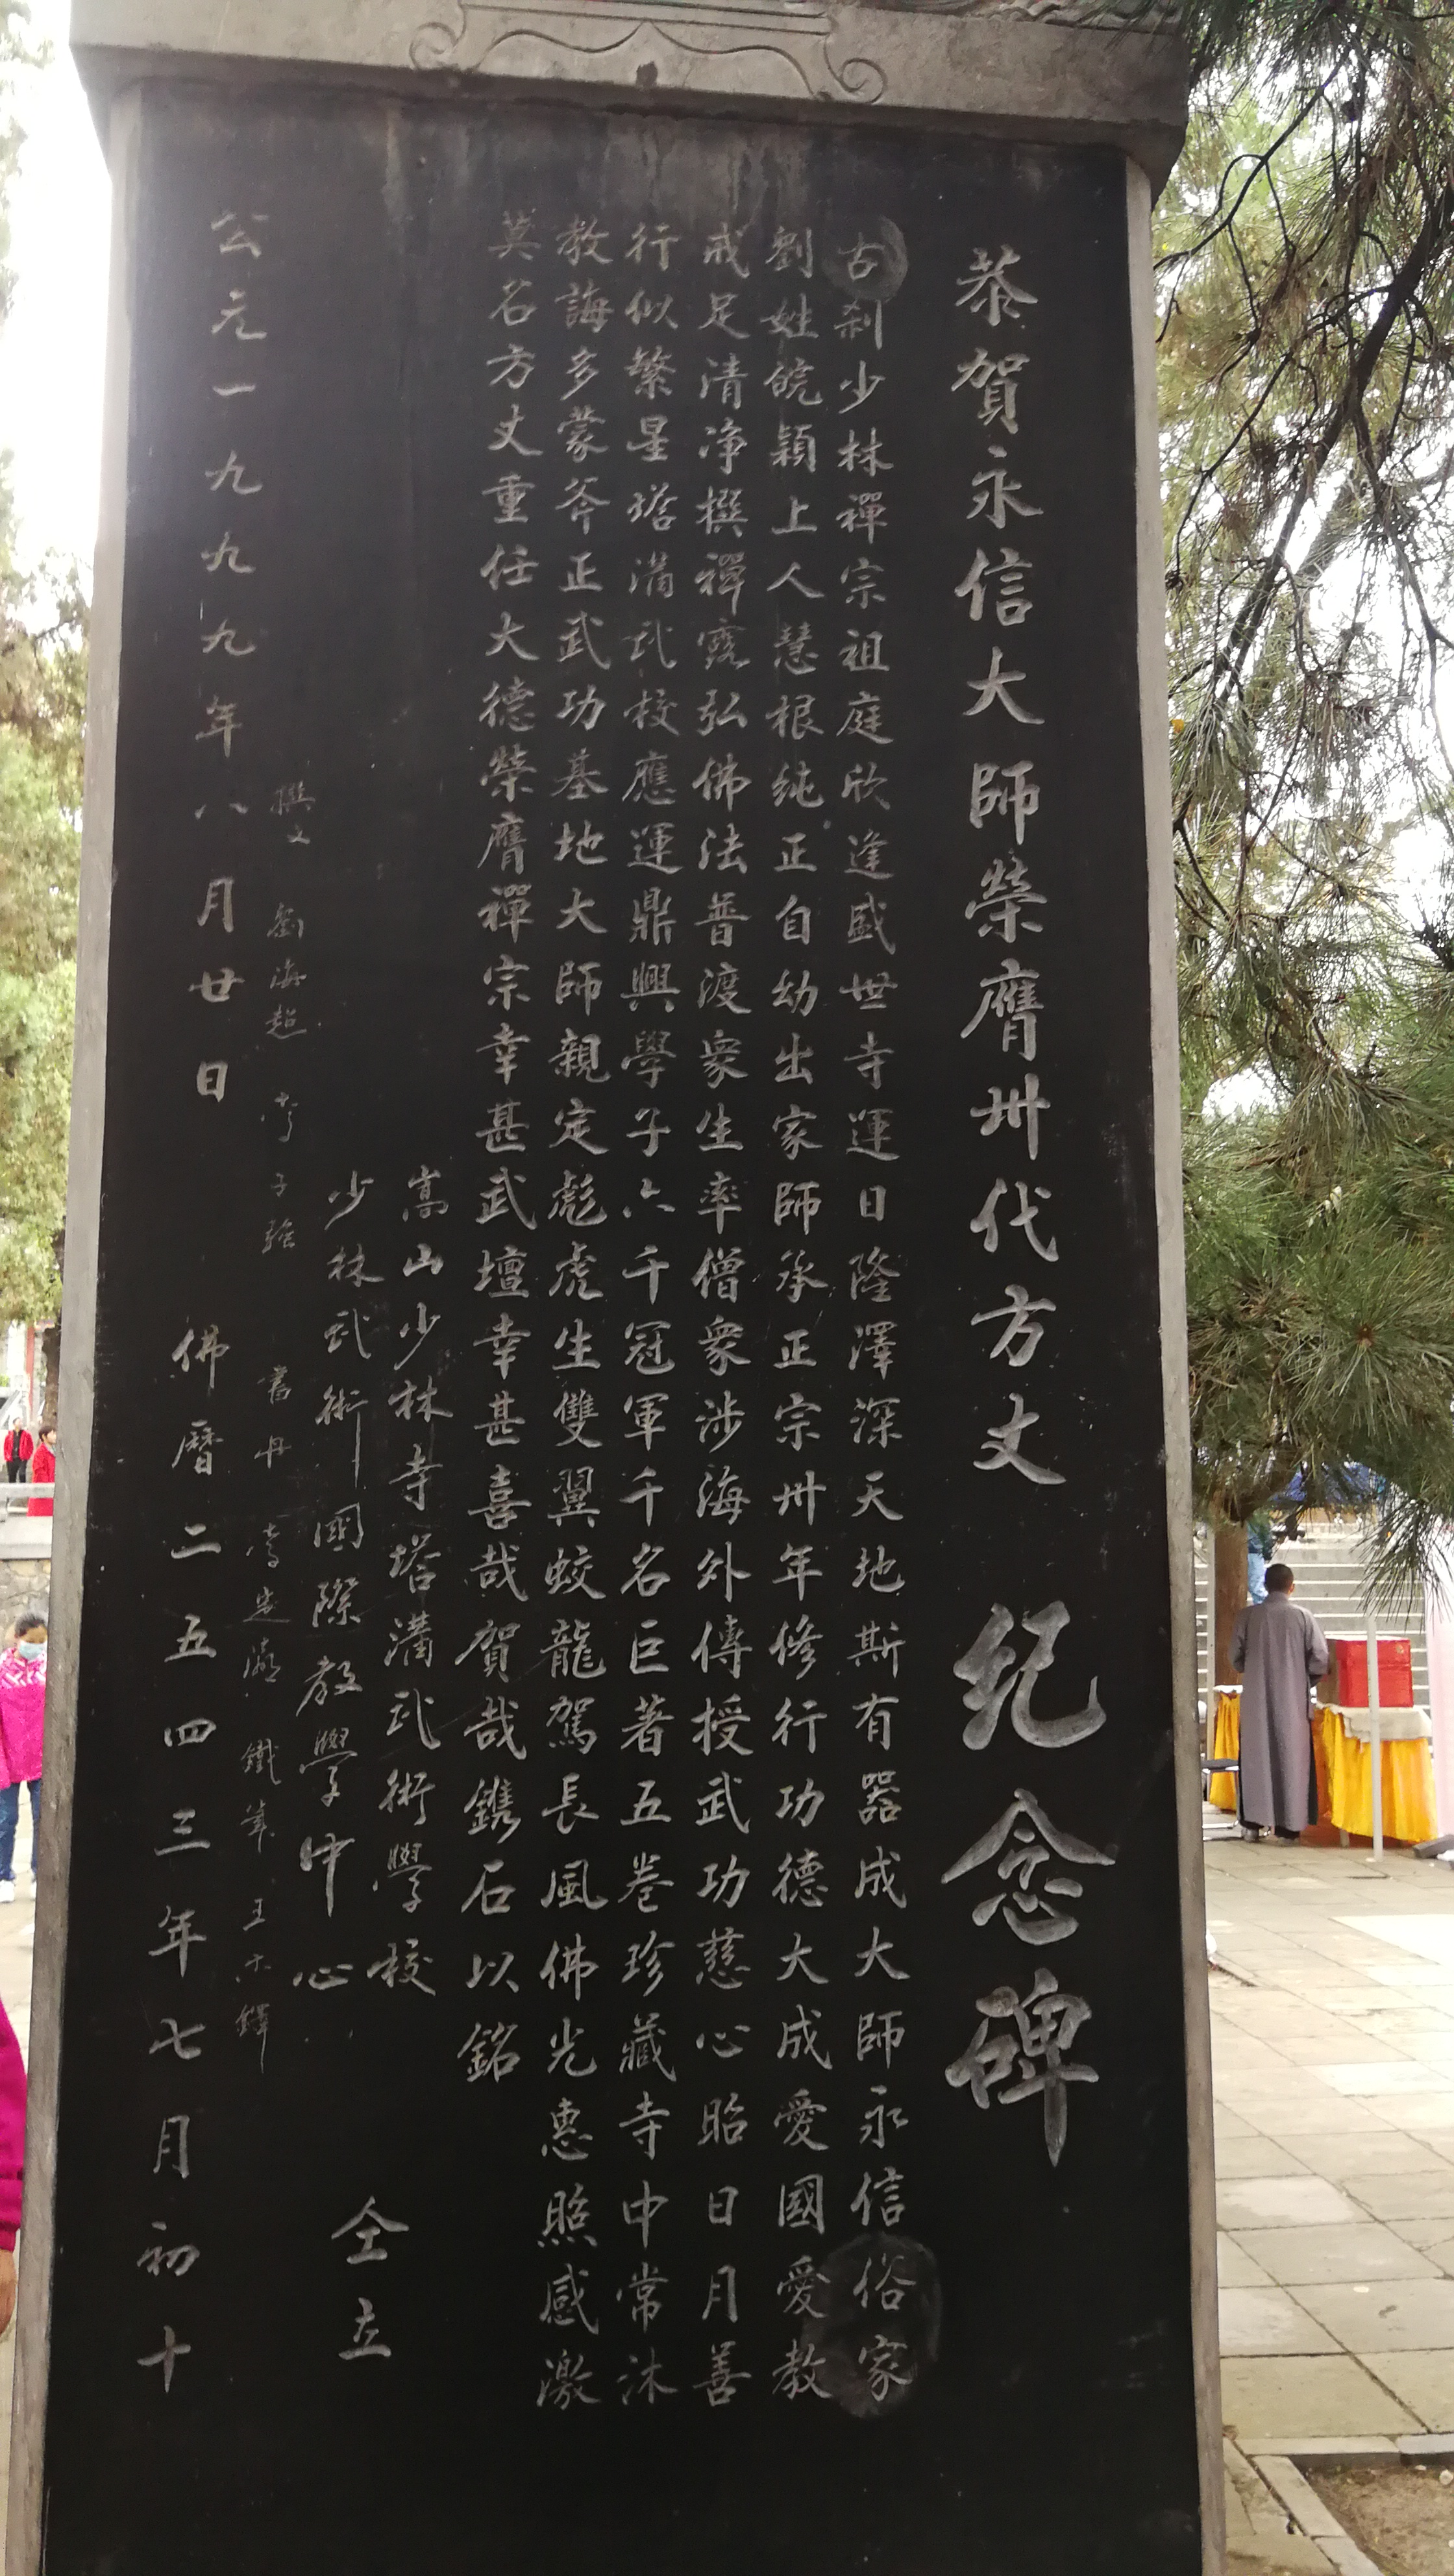 恭賀永信大師榮膺卅代方丈 纪念碑
古刹少林禪宗祖庭欣逢盛世寺運日隆澤深天地斯有器成大師永信俗家
劉姓皖穎上人慧根纯正自幼出家師承正宗卅年修行功德大成愛國愛教
戒足清净撰禪露弘佛法普渡衆生率僧衆涉海外傳授武功慈心昭日月善
行似繁星塔溝武校應運鼎興學子六千冠軍千名巨著五卷珍藏寺中常沐
教誨多蒙斧正武功基地大師親定彪虎生雙翼蛟龍駕長風佛光惠照感激
莫名方丈重任大德榮膺禪宗幸甚武壇幸甚喜哉賀哉鐫石以銘
嵩山少林寺塔溝武術學校
少林武術國際教學中心
仝立
撰文 劉海超 李子强 書丹 鐵筆 王
公元一九九九年八月廿日 佛曆二五四三年七月初十